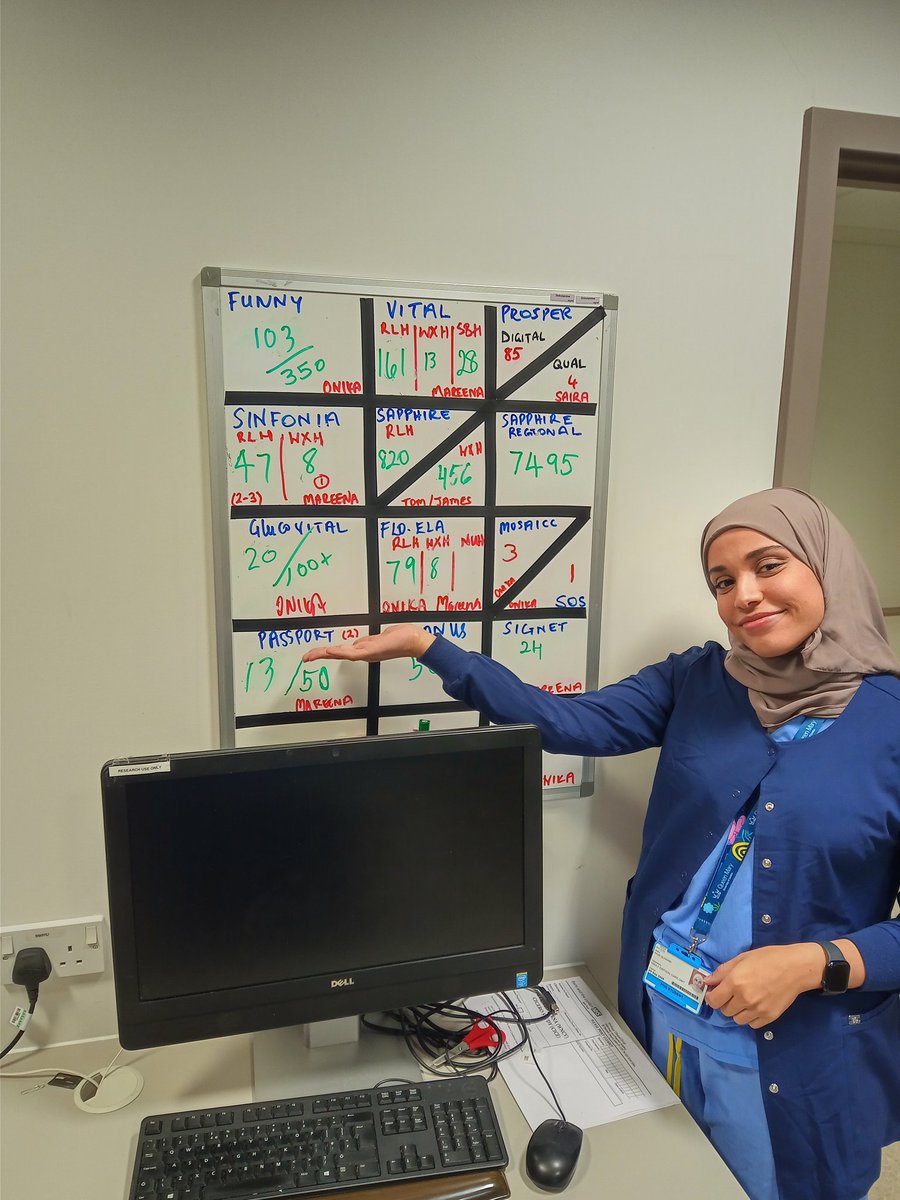 FUNNY
103
350
ONIKA
VITAL
RLH WXH SBH
161 13 28
MAREENA
PROSPER
DIGITAL
85
QUAL
4
SAIRA
SINFONIA
RLH WXH
47 8
(2-3) 1 MAREENA
SAPPHIRE
RLH
820
WXH
456
TOM/JAMES
SAPPHIRE
REGIONAL
7495
GLUCOVITAL
20/100+
ONIKA
FLO-ELA
RLH WXH NUH
79 8
ONIKA MAREENA
MOSAICC
3
1
ONIKA SOS
PASSPORT (2)
13/50
MAREENA
SIGNET
24
RESEARCH USE ONLY
DELL
Queen Mary